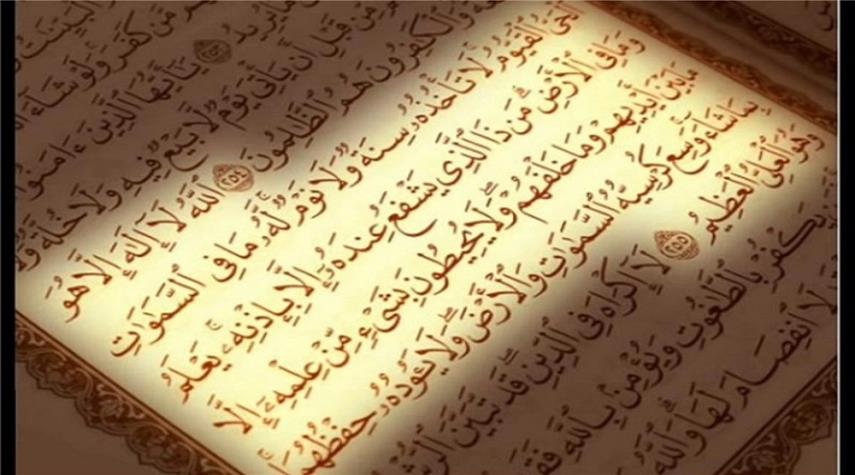 ٱلْبَيِّنَـٰتُ
مَّن كَفَرَ وَلَوْ شَآءَ
مَا يُرِيدُ ٢٥٣ يَـٰٓأَيُّهَا ٱلَّذِينَ ءَامَنُوٓا۟
مِّن قَبْلِ أَن يَأْتِىَ يَوْمٌ لَّا بَيْعٌ فِيهِ وَلَا خُلَّةٌ وَلَا
وَٱلْكَـٰفِرُونَ هُمُ ٱلظَّـٰلِمُونَ ٢٥٤ ٱللَّهُ لَآ إِلَـٰهَ إِلَّا هُوَ
ٱلْحَىُّ ٱلْقَيُّومُ لَا تَأْخُذُهُۥ سِنَةٌ وَلَا نَوْمٌ لَّهُۥ مَا فِى ٱلسَّمَـٰوَٰتِ
وَمَا فِى ٱلْأَرْضِ مَن ذَا ٱلَّذِى يَشْفَعُ عِندَهُۥٓ إِلَّا بِإِذْنِهِۦ يَعْلَمُ
مَا بَيْنَ أَيْدِيهِمْ وَمَا خَلْفَهُمْ وَلَا يُحِيطُونَ بِشَىْءٍ مِّنْ عِلْمِهِۦٓ إِلَّا
بِمَا شَآءَ وَسِعَ كُرْسِيُّهُ ٱلسَّمَـٰوَٰتِ وَٱلْأَرْضَ وَلَا يَـُٔودُهُۥ حِفْظُهُمَا
وَهُوَ ٱلْعَلِىُّ ٱلْعَظِيمُ ٢٥٥ لَآ إِكْرَاهَ فِى ٱلدِّينِ قَد تَّبَيَّنَ ٱلرُّشْدُ
يَكْفُرْ بِٱلطَّـٰغُوتِ وَيُؤْمِنۢ بِٱللَّهِ فَقَدِ
لَا ٱنفِصَامَ لَهَا وَٱللَّهُ